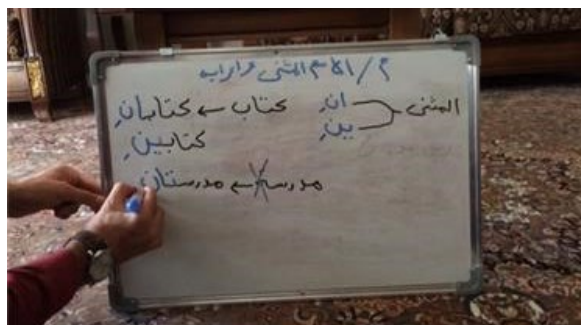 م/ الاسم المثنى واعرابه
المثنى انِ كتاب ← كتابانِ
ينِ كتابينِ
مدرسة ← مدرستانِ